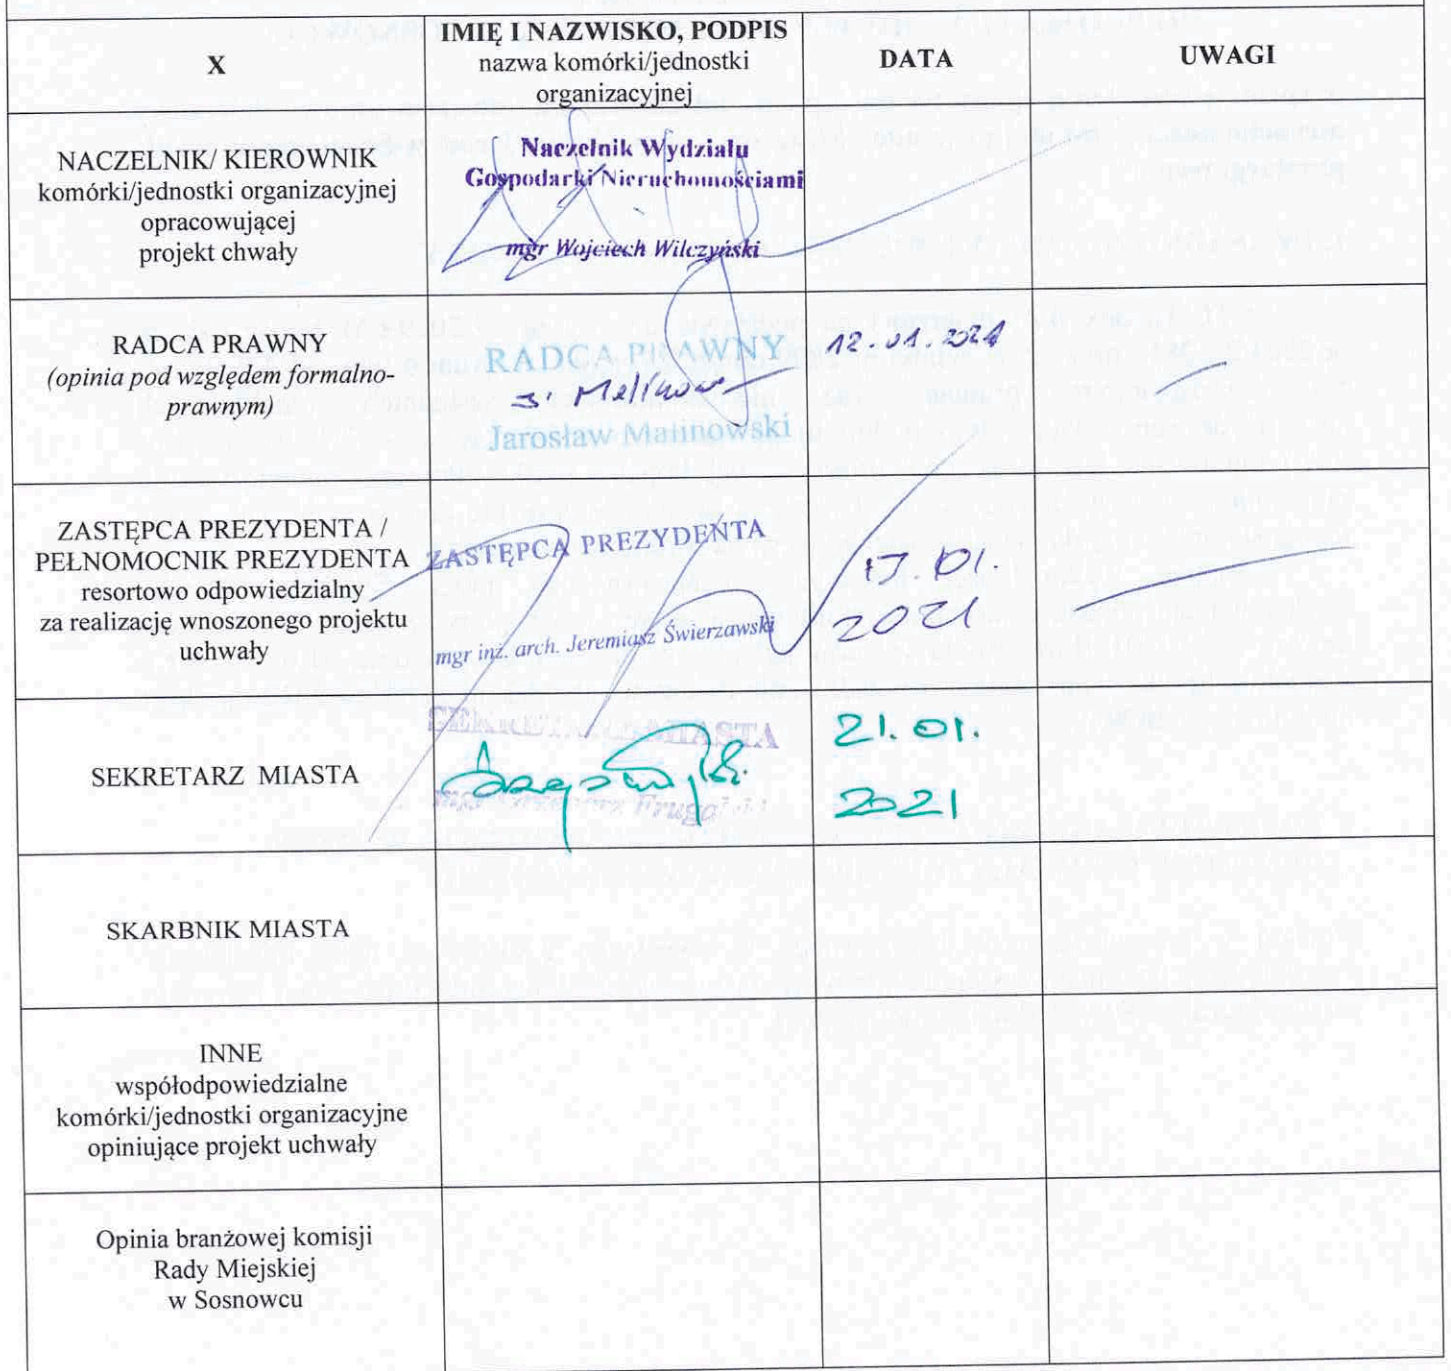 X
IMIĘ I NAZWISKO, PODPIS
nazwa komórki/jednostki
organizacyjnej
DATA
UWAGI
NACZELNIK/ KIEROWNIK
komórki/jednostki organizacyjnej
opracowującej
projekt chwały
Naczelnik Wydziału
Gospodarki Nieruchomościami
mgr Wojciech Wilczyński
RADCA PRAWNY
(opinia pod względem formalno-
prawnym)
RADCA PRAWNY
Jarosław Malinowski
12.01.2021
ZASTĘPCA PREZYDENTA /
PEŁNOMOCNIK PREZYDENTA
resortowo odpowiedzialny
za realizację wnoszonego projektu
uchwały
ZASTĘPCA PREZYDENTA
mgr inż. arch. Jeremiasz Świerzawski
13.01.
2021
SEKRETARZ MIASTA
SEKRETARZ MIASTA
mgr
21.01.
2021
SKARBNIK MIASTA
INNE
współodpowiedzialne
komórki/jednostki organizacyjne
opiniujące projekt uchwały
Opinia branżowej komisji
Rady Miejskiej
w Sosnowcu